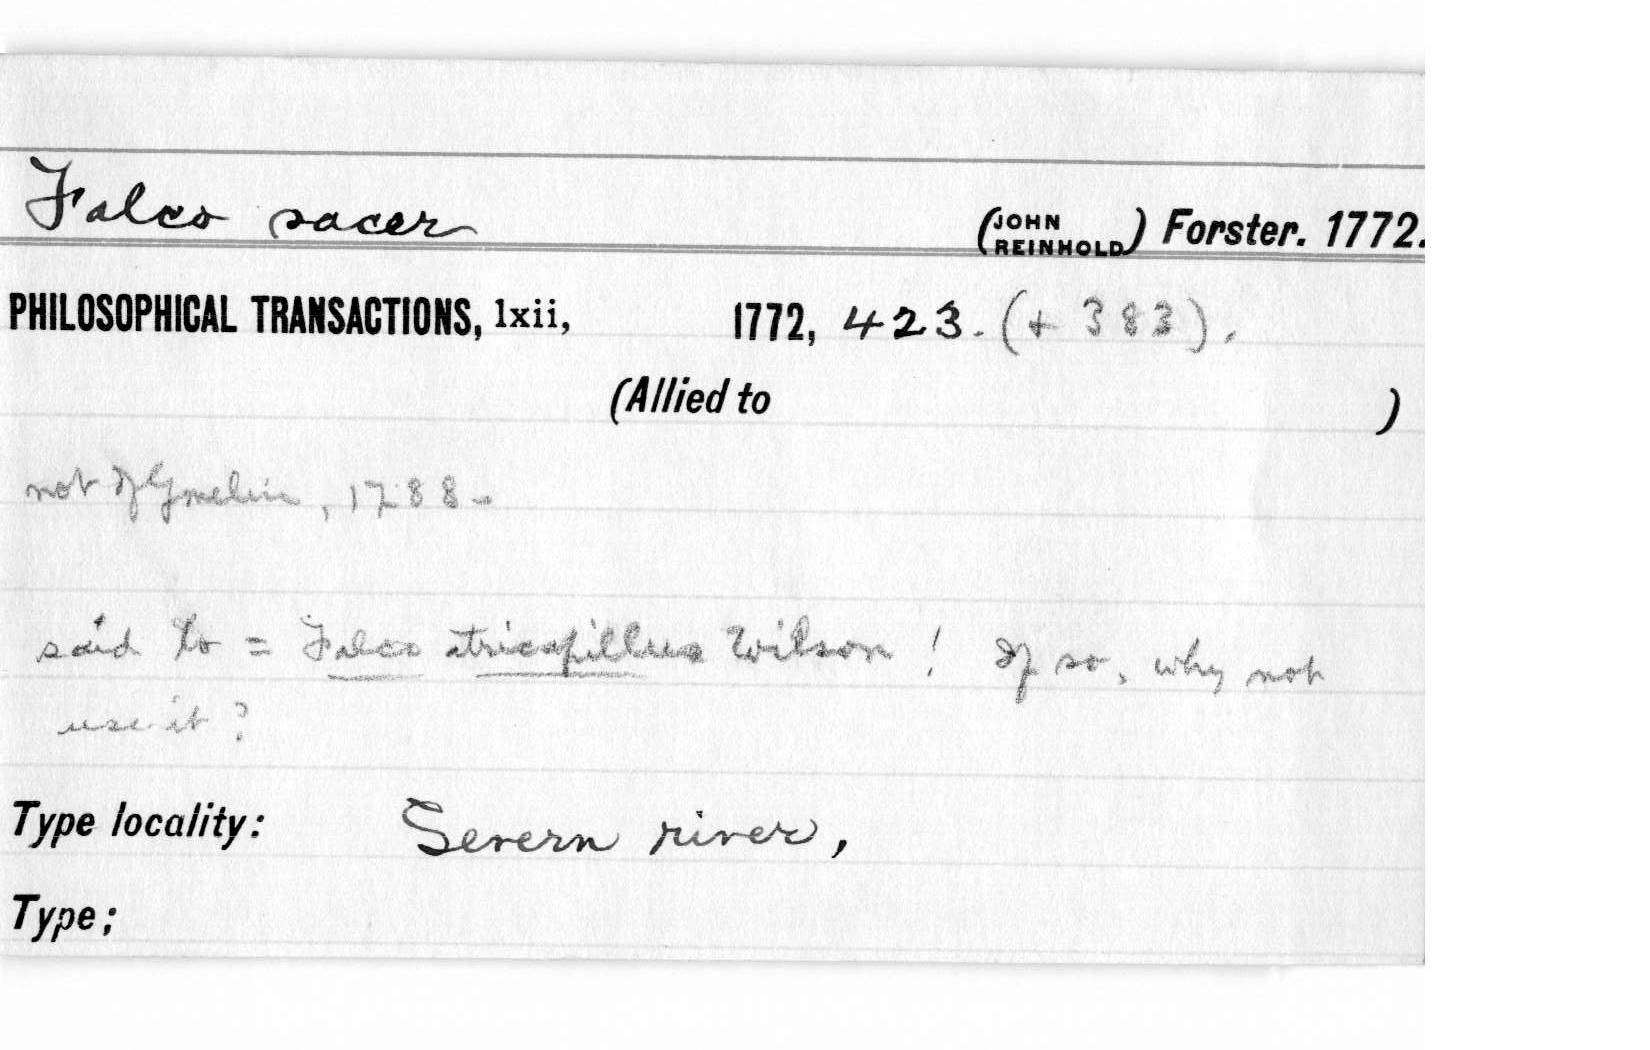 Falco sacer (JOHN REINHOLD) Forster. 1772.
PHILOSOPHICAL TRANSACTIONS, lxii, 1772, 423. (+ 383).
(Allied to )
not of Gmelin, 1788-
said to = Falco atricapillus Wilson! If so, why not
use it?
Type locality: Severn river,
Type;